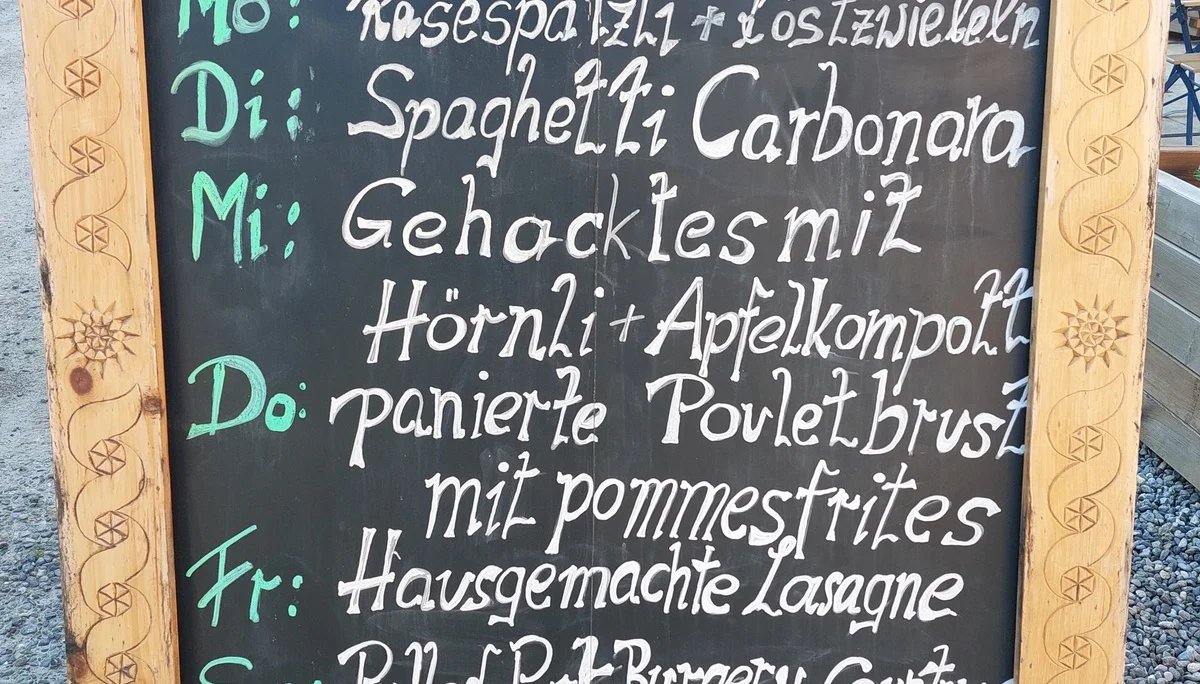 Mo: Käsespätzli + Röstzwiebeln
Di: Spaghetti Carbonara
Mi: Gehacktes mit
Hörnli + Apfelkompott
Do: panierte Pouletbrust
mit pommesfrites
Fr: Hausgemachte Lasagne
Pulled Pork Burger